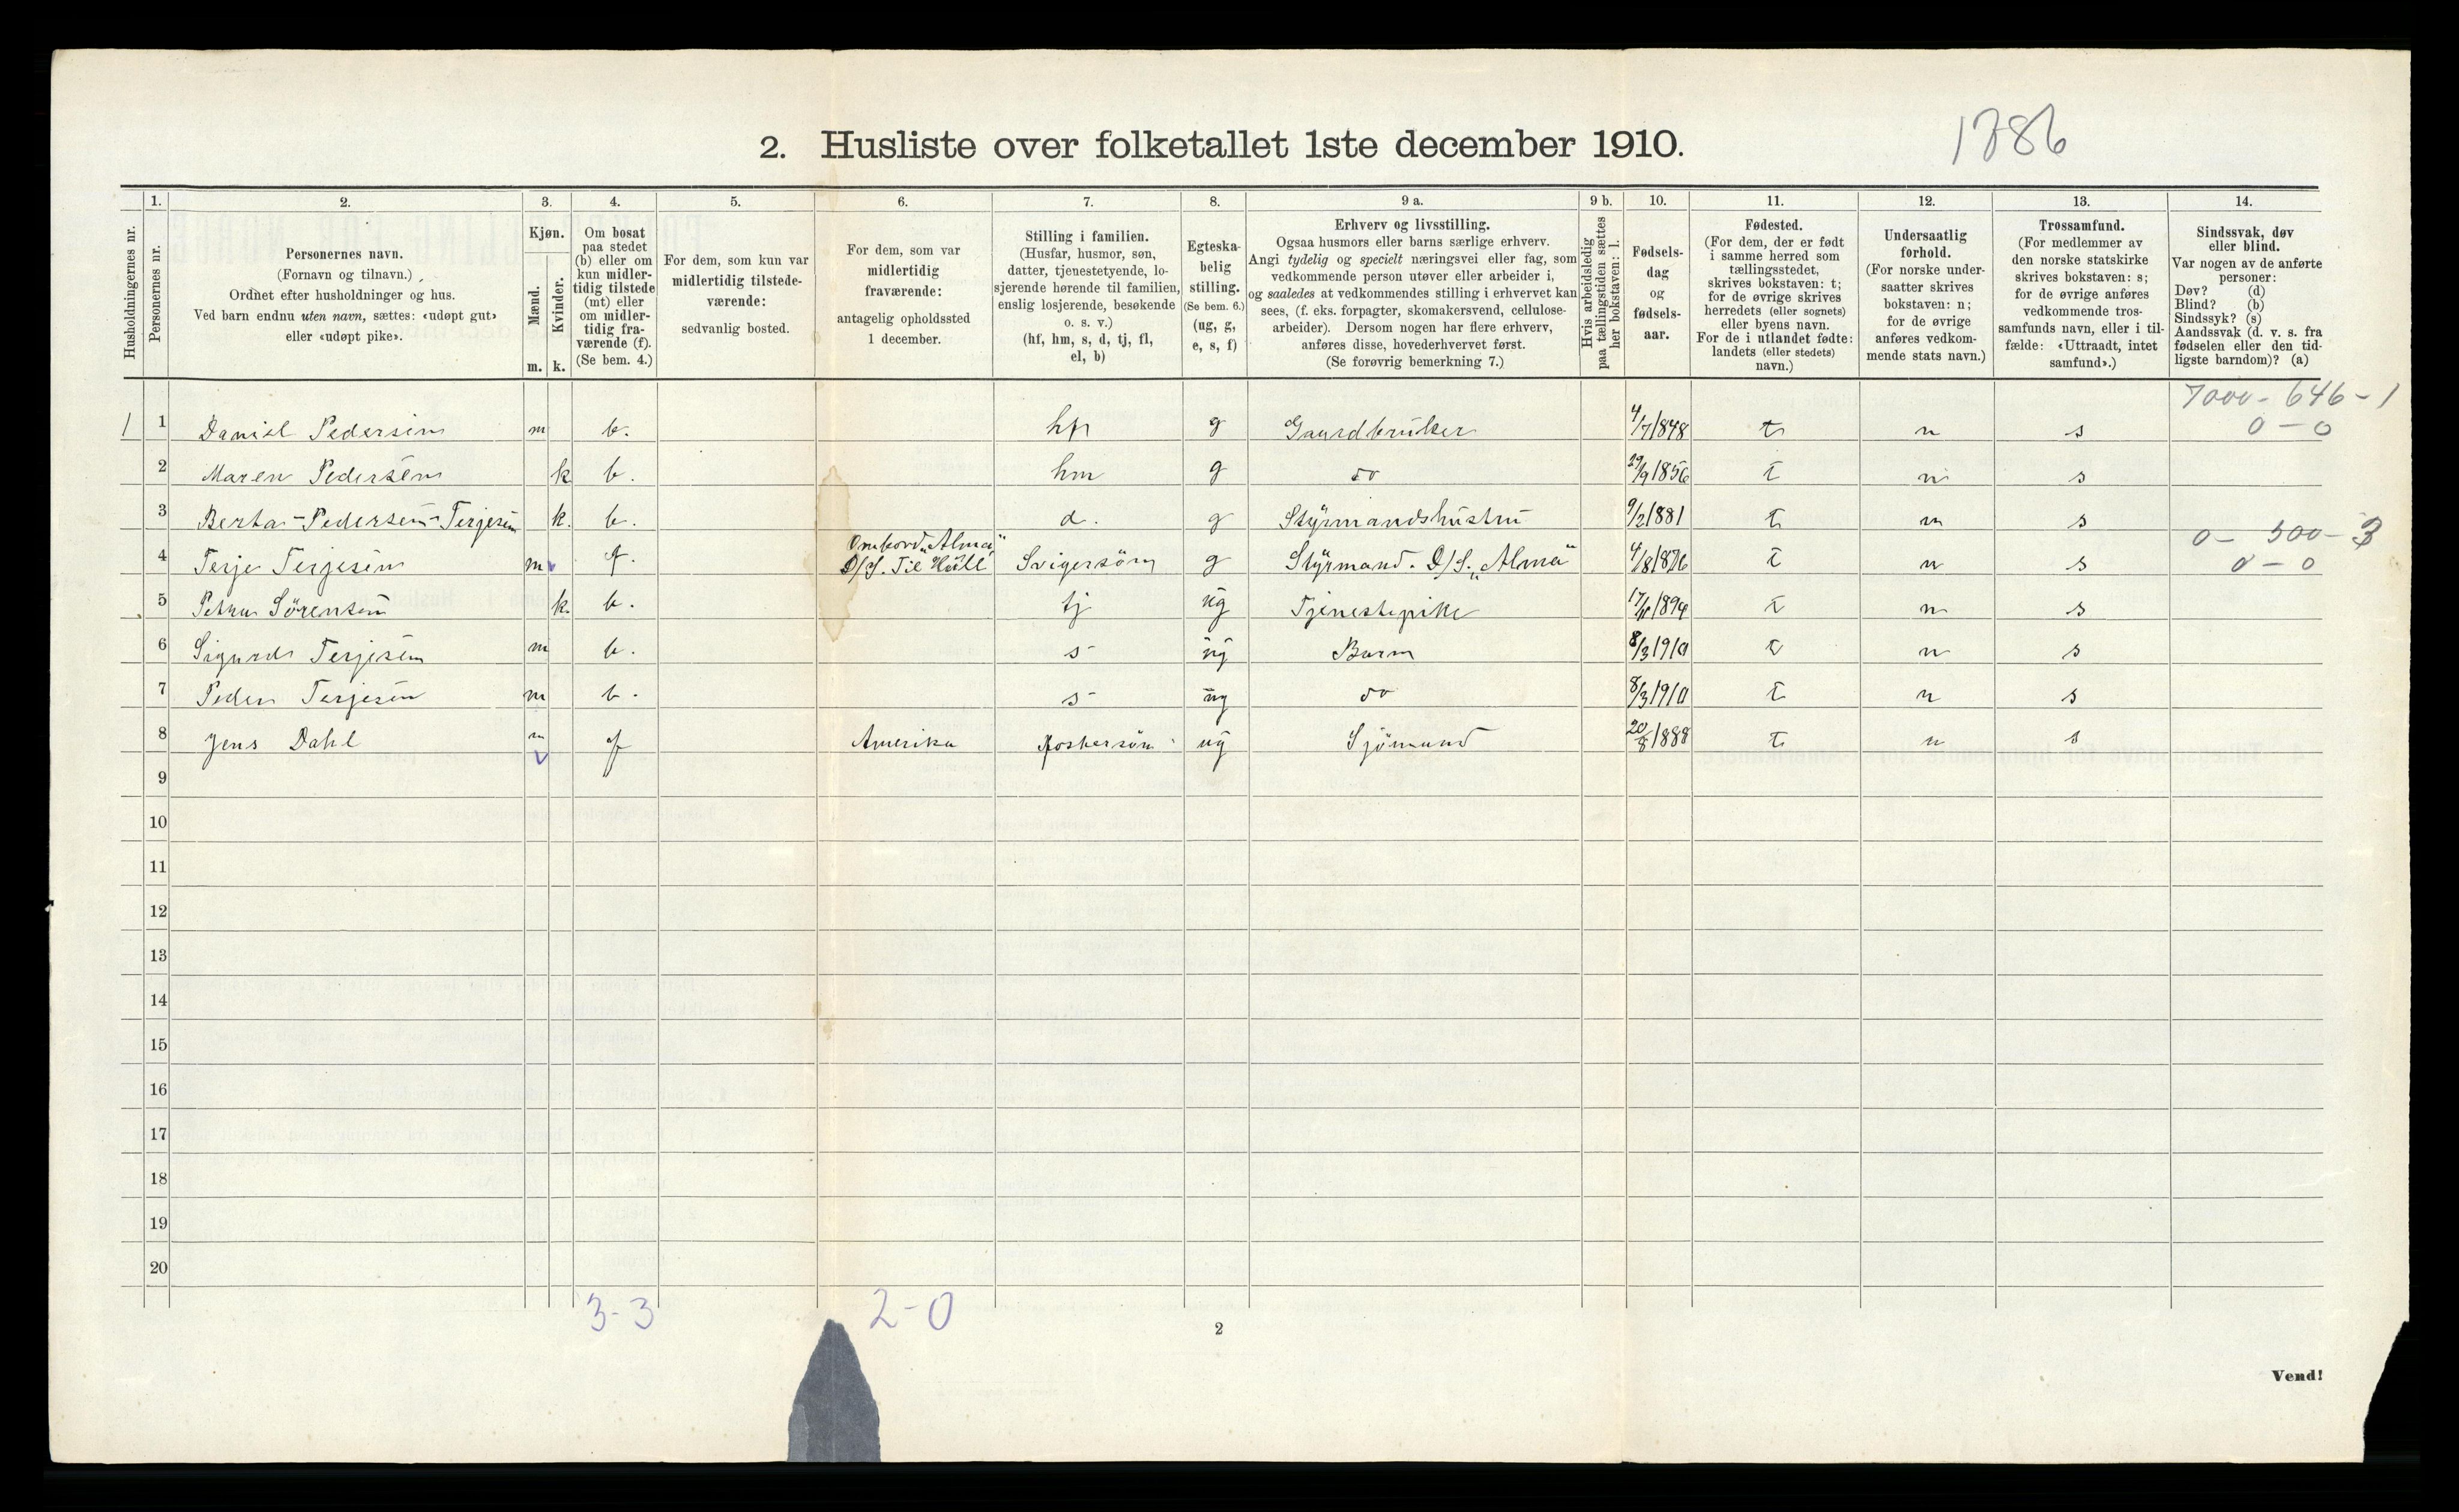 2. Husliste over folketallet 1ste december 1910.
1386
Husholdningernes nr.
1.
Personernes nr.
2.
Personernes navn.
(Fornavn og tilnavn.)
Ordnet efter husholdninger og hus.
Ved barn endnu uten navn, sættes: «udøpt gut»
eller «udøpt pike».
3.
Kjøn.
Mænd.
Kvinder.
m. k.
4.
Om bosat
paa stedet
(b) eller om
kun midler-
tidig tilstede
(mt) eller
om midler-
tidig fra-
værende (f).
(Se bem. 4.)
5.
For dem, som kun var
midlertidig tilstede-
værende:
sedvanlig bosted.
6.
For dem, som var
midlertidig
fraværende:
antagelig opholdssted
1 december.
7.
Stilling i familien.
(Husfar, husmor, søn,
datter, tjenestetyende, lo-
sjerende hørende til familien,
enslig losjerende, besøkende
o. s. v.)
(hf, hm, s, d, tj, fl,
el, b)
8.
Egteska-
belig
stilling.
(Se bem. 6.)
(ug, g,
e, s, f)
9 a.
Erhverv og livsstilling.
Ogsaa husmors eller barns særlige erhverv.
Angi tydelig og specielt næringsvei eller fag, som
vedkommende person utøver eller arbeider i,
og saaledes at vedkommendes stilling i erhvervet kan
sees, (f. eks. forpagter, skomakersvend, cellulose-
arbeider). Dersom nogen har flere erhverv,
anføres disse, hovederhvervet først.
(Se forøvrig bemerkning 7.)
9 b.
Hvis arbeidsledig
paa tællingstiden sættes
her bokstaven: l.
10.
Fødsels-
dag
og
fødsels-
aar.
11.
Fødested.
(For dem, der er født
i samme herred som
tællingsstedet,
skrives bokstaven: t;
for de øvrige skrives
herredets (eller sognets)
eller byens navn.
For de i utlandet fødte:
landets (eller stedets)
navn.)
12.
Undersaatlig
forhold.
(For norske under-
saatter skrives
bokstaven: n;
for de øvrige
anføres vedkom-
mende stats navn.)
13.
Trossamfund.
(For medlemmer av
den norske statskirke
skrives bokstaven: s;
for de øvrige anføres
vedkommende tros-
samfunds navn, eller i til-
fælde: «Uttraadt, intet
samfund».)
14.
Sindssvak, døv
eller blind.
Var nogen av de anførte
personer:
Døv? (d)
Blind? (b)
Sindssyk? (s)
Aandssvak (d. v. s. fra
fødselen eller den tid-
ligste barndom)? (a)
7000 - 646 - 1
1 1 Daniel Pedersen m b. hf g Gaardbruker 4/7 1848 t n s 0 - 0
2 Maren Pedersen k b. hm g do 29/9 1856 t n s
3 Berta - Pedersen - Terjesen k. b. d. g Styrmandshustru 9/2 1881 t n s
Ombord "Alma" 0 - 500 - 3
4 Terje Terjesen m f. D/S. Til Hull Svigersön g Styrmand. D/S. "Alma" 4/8 1876 t n s 0 - 0
5 Petra Sörensen k. b. tj ug Tjenestepike 1894 t n s
6 Sigurd Terjesen m b. s ug Barn 8/3 1910 t n s
7 Peder Terjesen m b. s ug do 8/3 1910 t n s
8 Jens Dahl m f Amerika Fostersön ug Sjömand 20/8 1888 t n s
9
10
11
12
13
14
15
16
17
18
19
20
3-3 2-0
2
Vend!